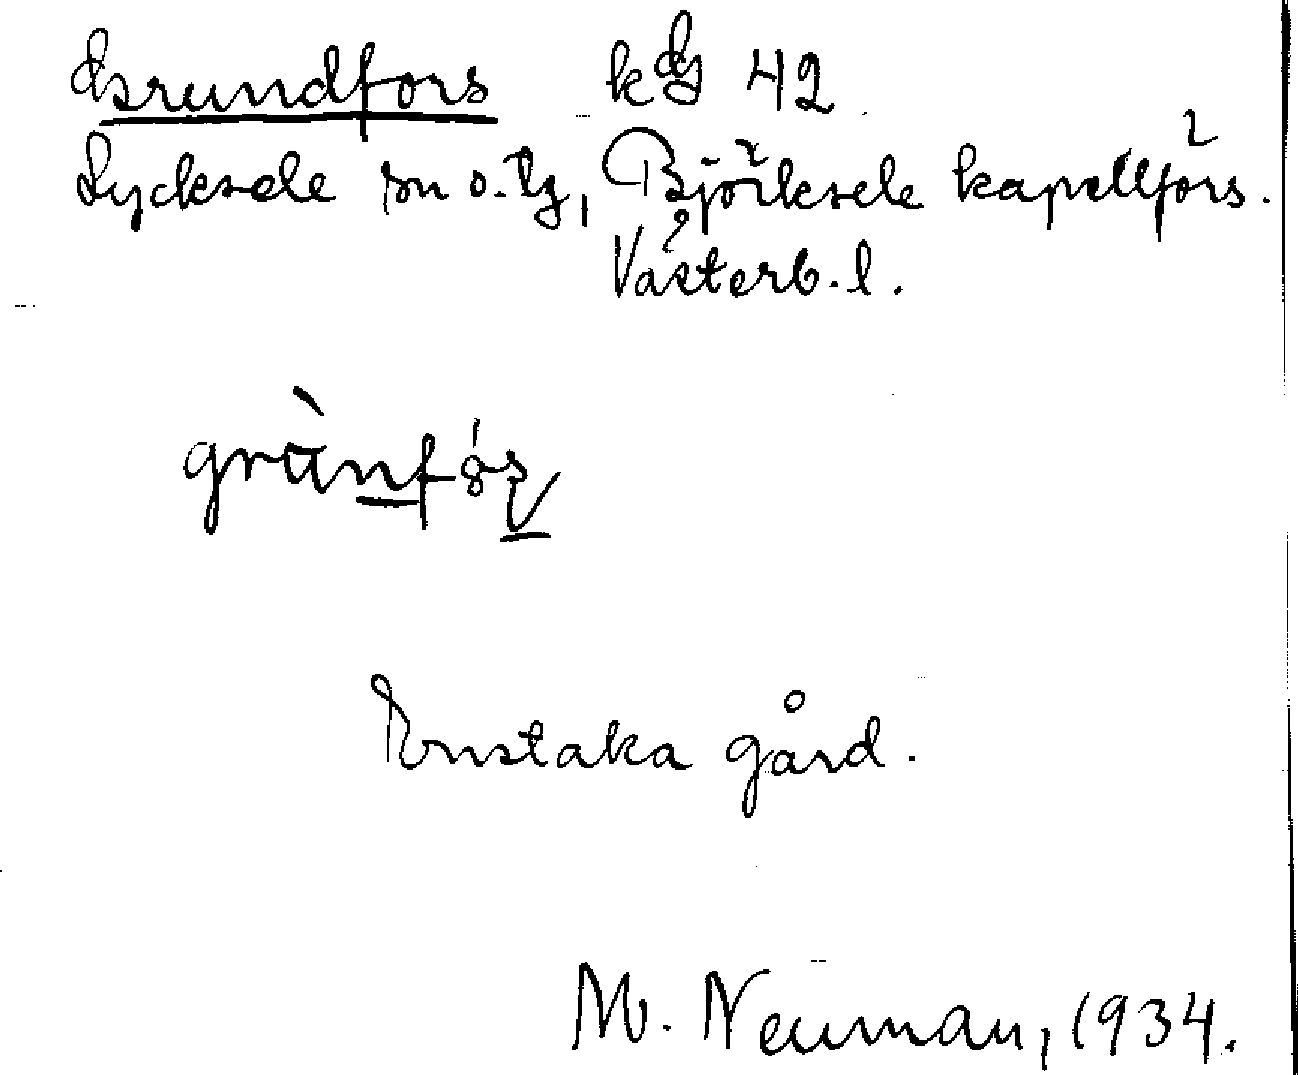 Grundfors kbl 42
Lycksele sn o. tg, Björksele kapellförs.
Västerb. l.
Enstaka gård.
M. Neuman, 1934.